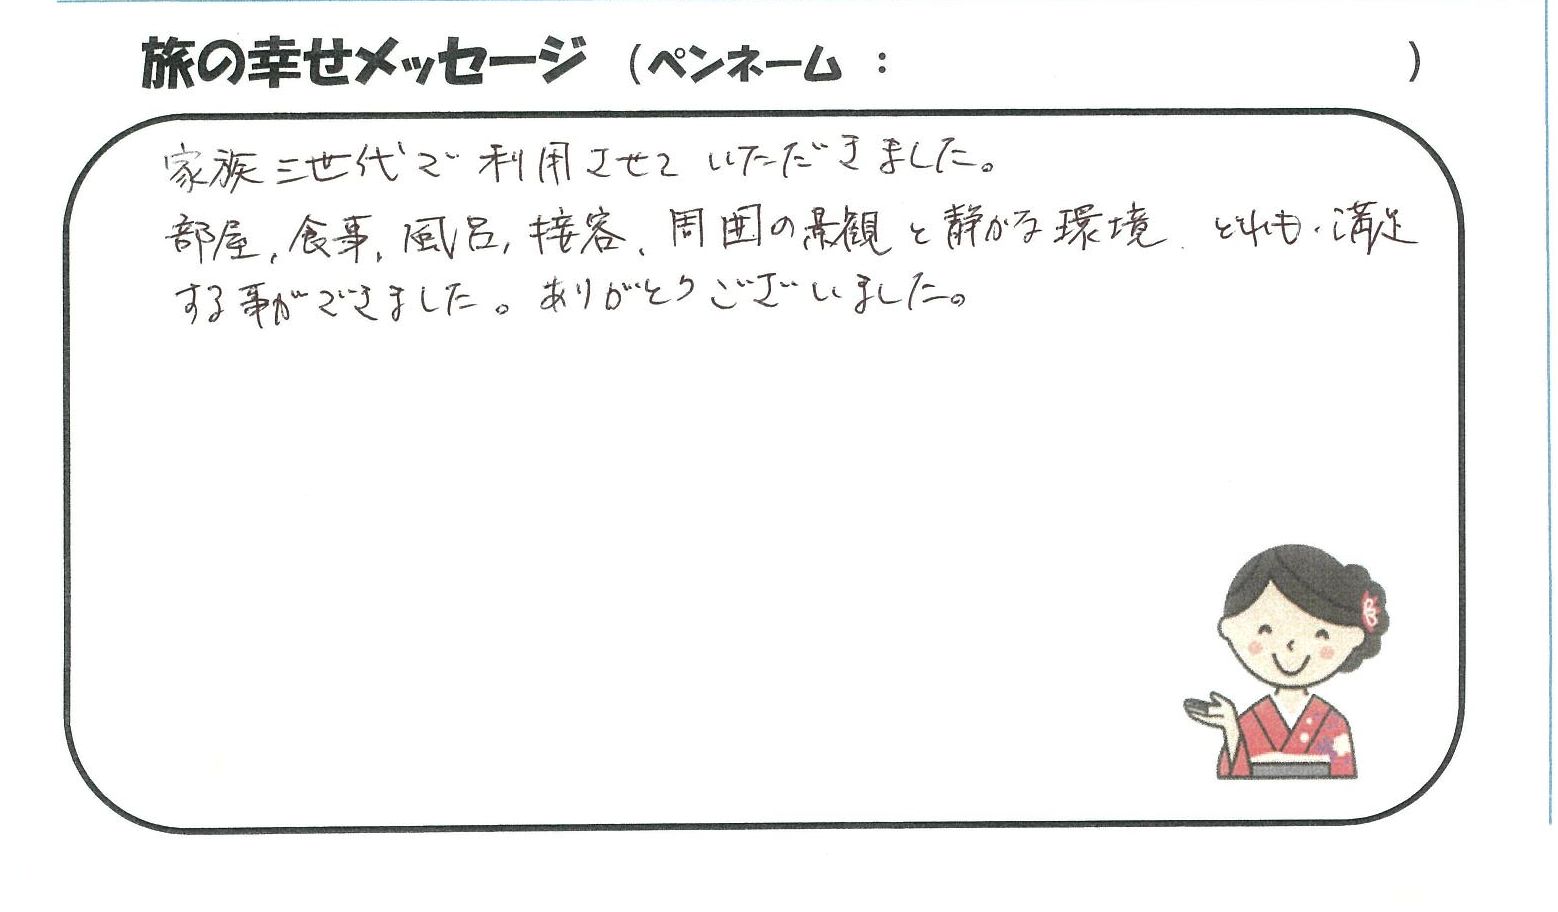 旅の幸せメッセージ （ペンネーム ： ）
家族三世代で利用させていただきました。
部屋、食事、風呂、接客、周囲の景観と静かな環境、とれも、満足
する事ができました。ありがとうございました。